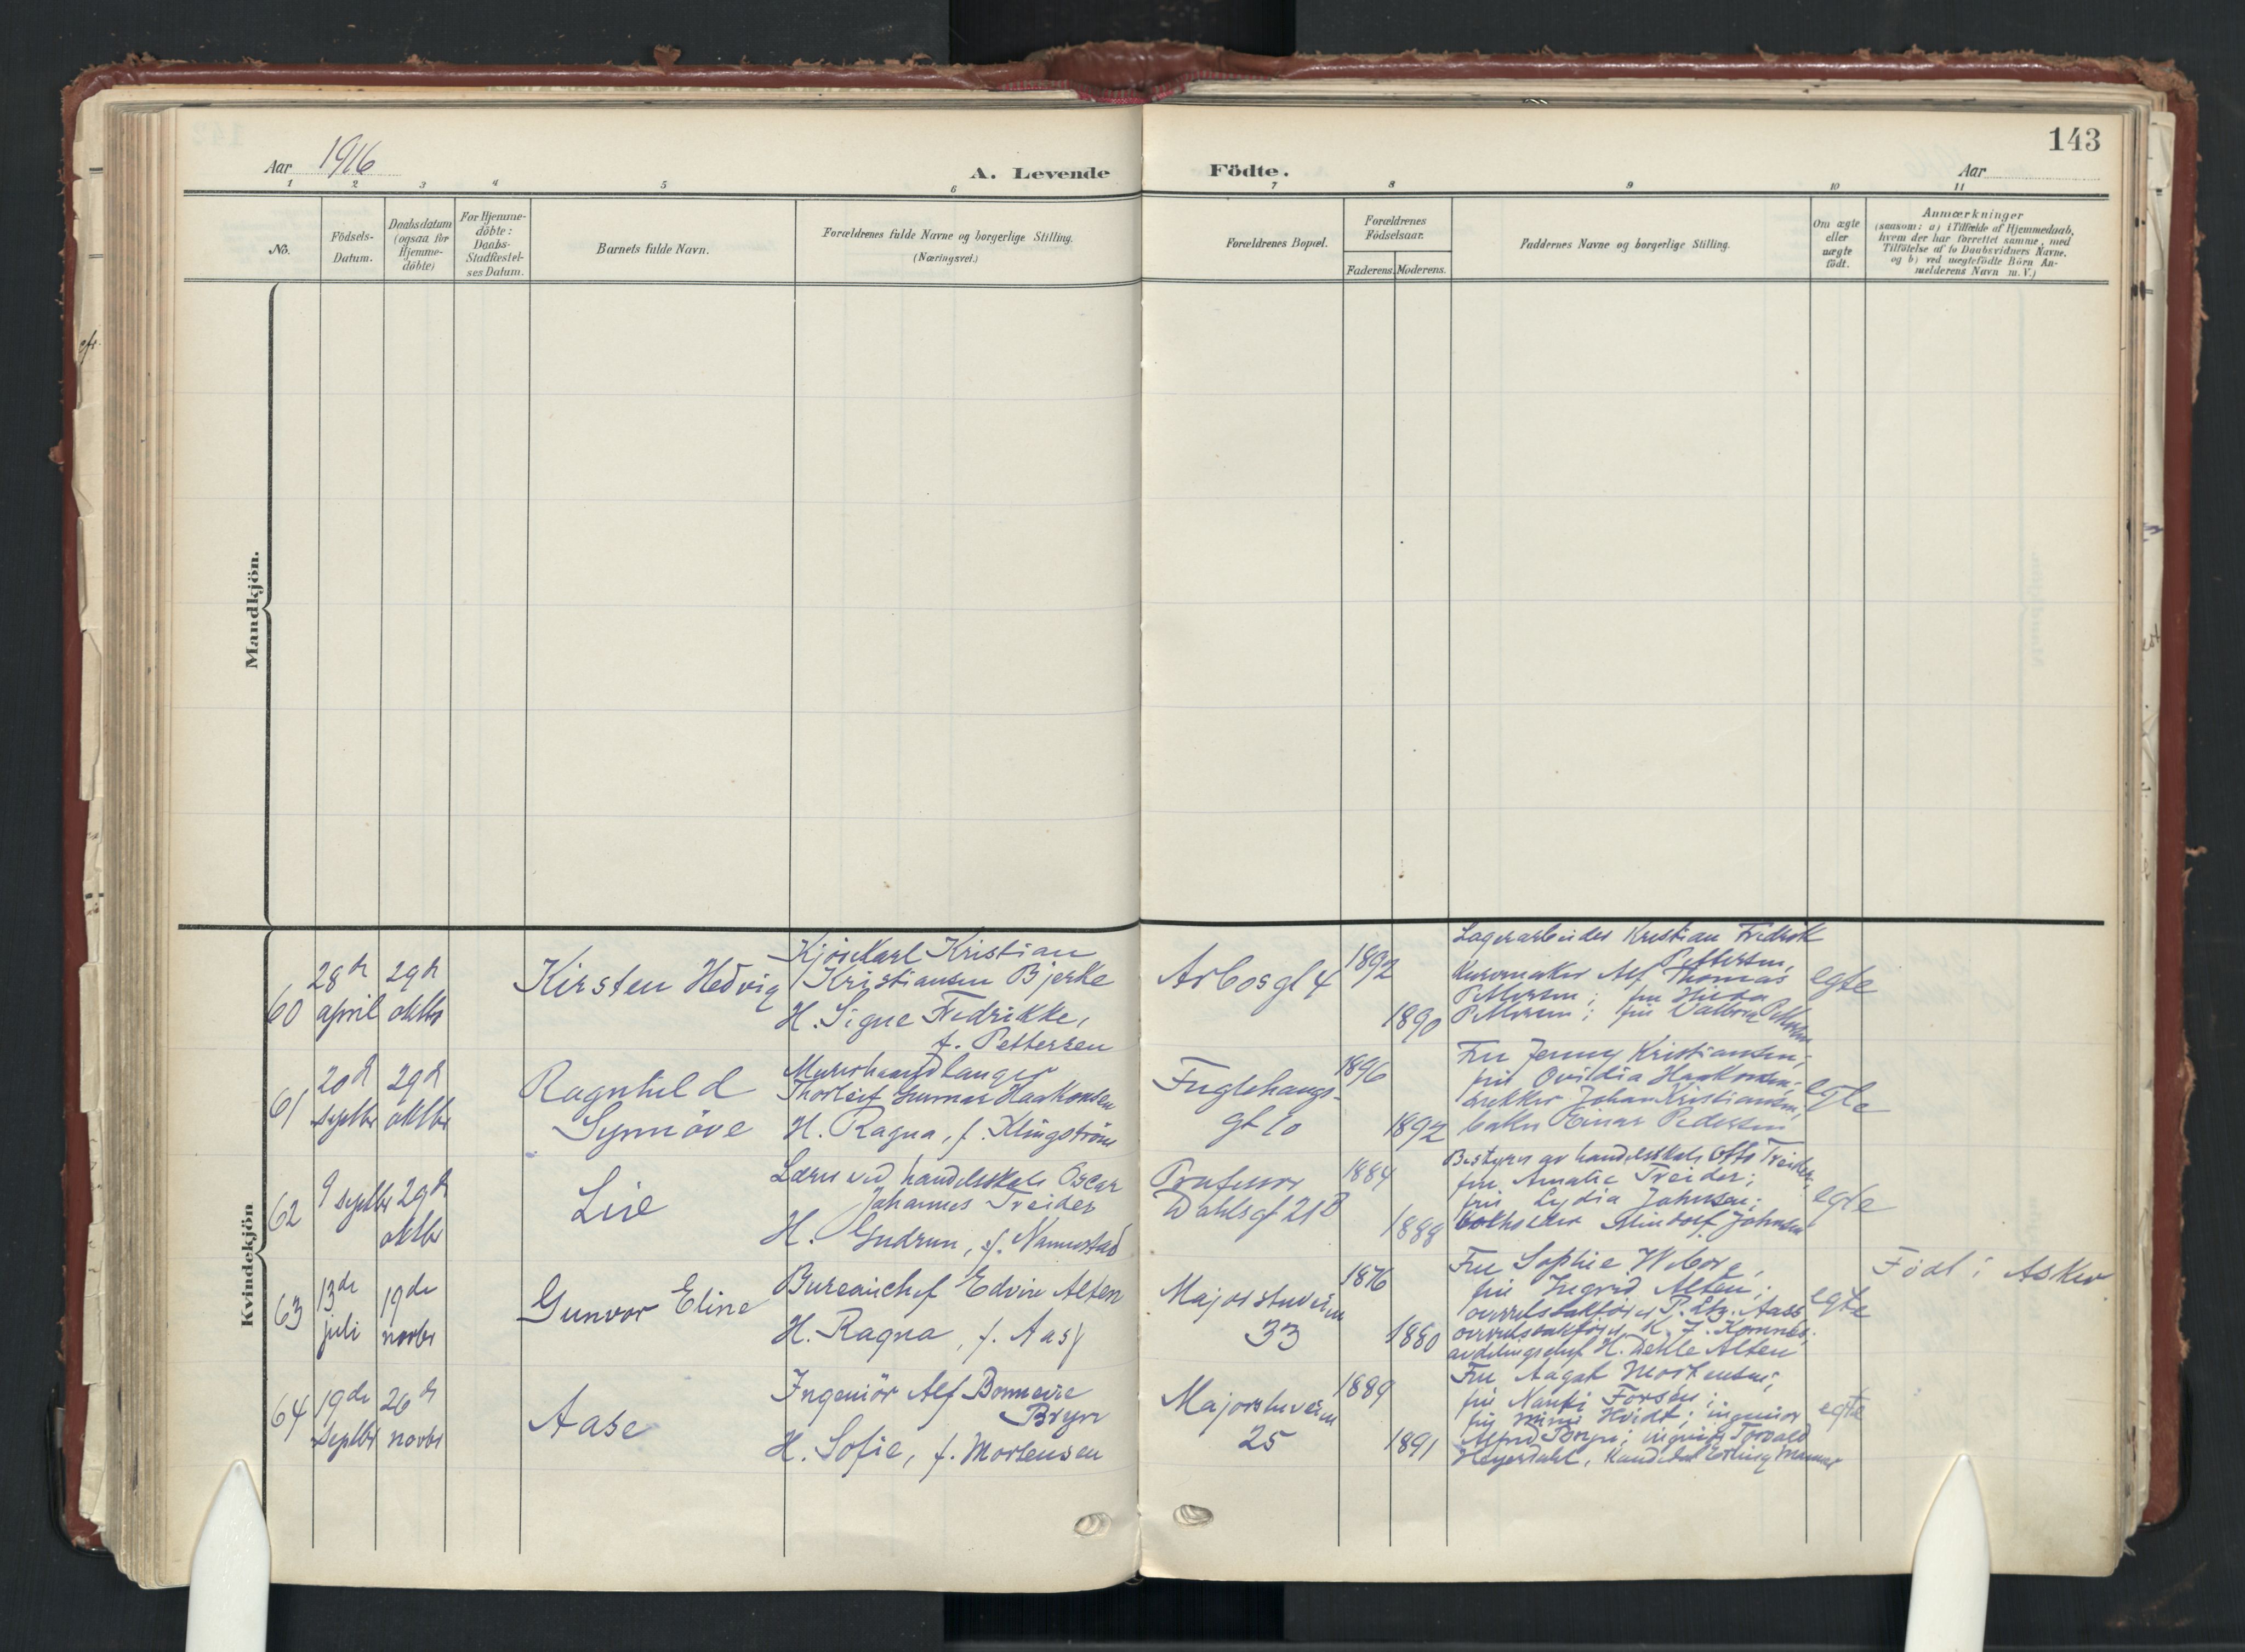 143
Aar 1916
A. Levende Födte.
Aar
1 2 3 4 5 6 7 8 9 10 11
No.
Födsels-
Datum.
Daabsdatum
(ogsaa for
Hjemme-
döbte)
For Hjemme-
döbte:
Daabs-
Stadfæstel-
ses Datum.
Barnets fulde Navn.
Forældrenes fulde Navne og borgerlige Stilling.
(Næringsvei.)
Forældrenes Bopæl.
Forældrenes
Födselsaar.
Faderens. Moderens.
Faddernes Navne og borgerlige Stilling.
Om ægte
eller
uægte
födt.
Anmærkninger
(saasom: a) i Tilfælde af Hjemmedaab,
hvem der har forrettet samme, med
Tilföielse af to Daabsvidners Navne.
og b) ved uægtefödte Börn An-
melderens Navn m. V.)
Mandkjön.
Kvindekjön
60
28de
april
29de
oktbr
Kirsten Hedvig
Karl Kristian
Kristiansen Bjerke
H. Signe Fredrikke,
f. Pettersen
Arbosgt 4
1892
1890
Lagerarbeider Kristian Fredrik
Pettersen,
Kurvmaker Alf Thomas
Pettersen; fru
Pettersen; frk Valborg Pettersen
egte
61
20de
septbr
29de
oktbr
Ragnhild
Synnöve
Murerhaandlanger
Thorleif Gunnar Haakonsen
H. Ragna, f. Klingström
Fuglehaugs-
gt 10
1896
1892
Fru Jenny Kristiansen;
frk Ovidia Haakonsen;
Johan Kristiansen,
Einar Pedersen
egte
62
9 septbr
29de
oktbr
Lise
Lærer ved handelsskole Oscar
Johannes Treider
H. Gudrun, f. Nannestad
Professor
Dahlsgt 21B
1884
1888
Bestyrer av handelsskole Otto Treider,
fru Amalie Treider;
frk Lydia Johnsen;
Johnsen
egte
63
13de
juli
19de
novbr
Gunvor Eline
Bureauchef Edvin Alten
H. Ragna, f. Aass
Majorstuveien
33
1876
1880
Fru Sophie Wiborg,
frk Ingrid Alten;
overretssakförer P. Chr. Aass
overretssakförer K. F.
avdelingschef H. Dehle Alten
egte
Födt i Asker
64
19de
septbr
26de
novbr
Aase
Ingeniör Alf Bonnevie
Bryn
H. Sofie, f. Mortensen
Majorstuveien
25
1889
1891
Fru Aagot Mortensen;
frk Nanti Forsén;
frk Mimi Hvidt; ingeniör
Alfred Bryn; ingeniör Torvald
Heyerdahl, Kandidat Erling
egte